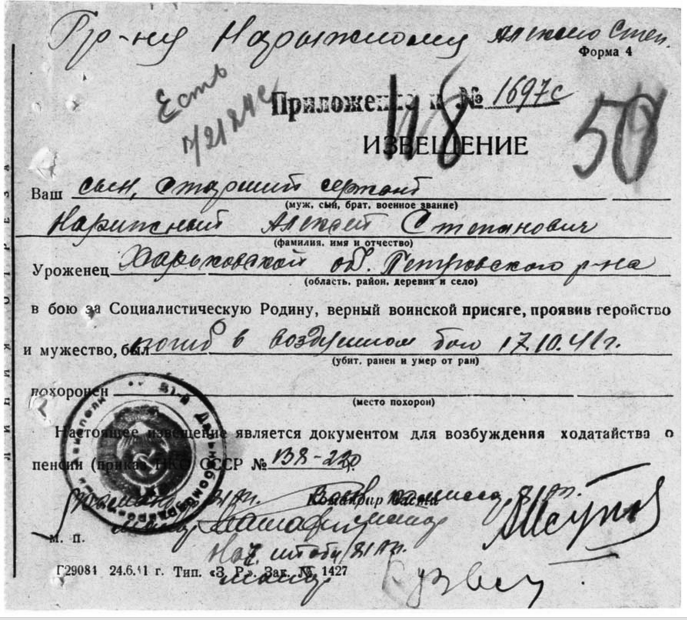 Гр-ну Нарыжному Алексею Степ.
Форма 4
Есть
Приложение к № 1697с
118
50
ИЗВЕЩЕНИЕ
Ваш сын, старший сержант
(муж, сын, брат, военное звание)
Нарижный Алексей Степанович
(фамилия, имя и отчество)
Уроженец Харьковской об. Петровского р-на
(область, район, деревня и село)
в бою за Социалистическую Родину, верный воинской присяге, проявив геройство
и мужество, был погиб в воздушном бою 17.10.41г.
(убит, ранен и умер от ран)
похоронен
(место похорон)
Настоящее извещение является документом для возбуждения ходатайства о
пенсии (приказ НКО СССР № 138-22р.
Командир части
Нач. штаба 81 ап.
м. п.
Г29081 24.6.41 г. Тип. «З. Р». Зак. № 1427
ЛИНИЯ ОТРЕЗА